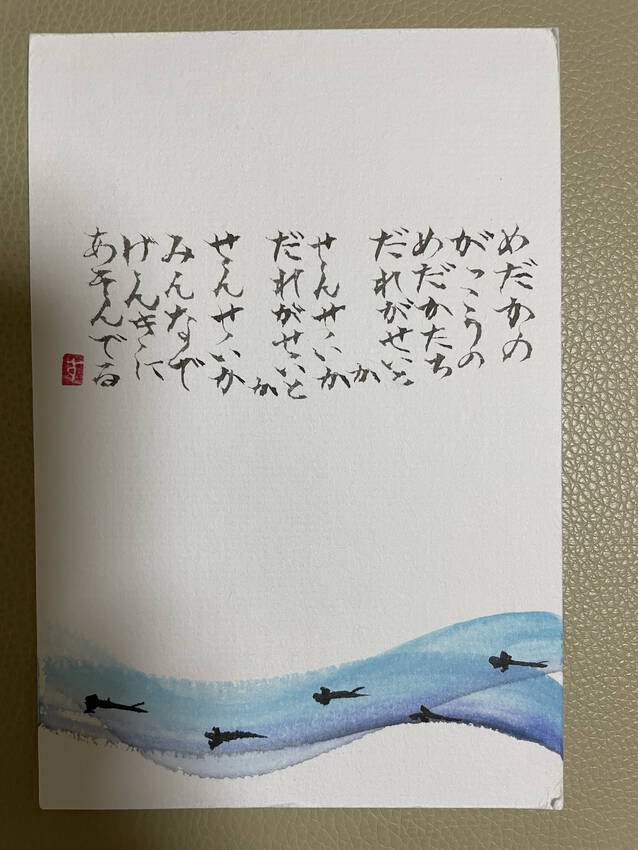 めだかの
がっこうの
めだかたち
だれがせいと
か
せんせいか
だれがせいと
か
せんせいか
みんなで
げんきに
あそんでる